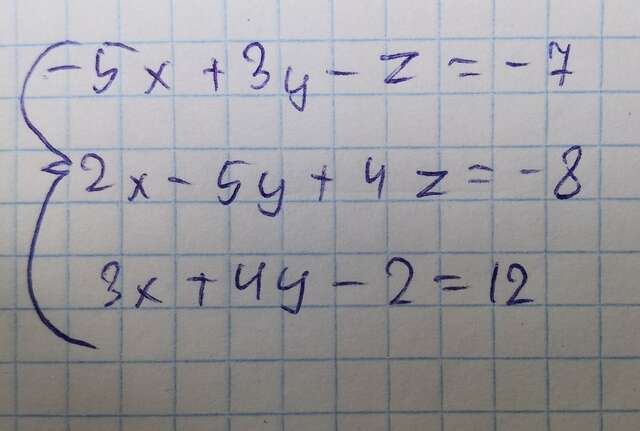 -5x + 3y - z = -7
2x - 5y + 4z = -8
3x + 4y - 2 = 12